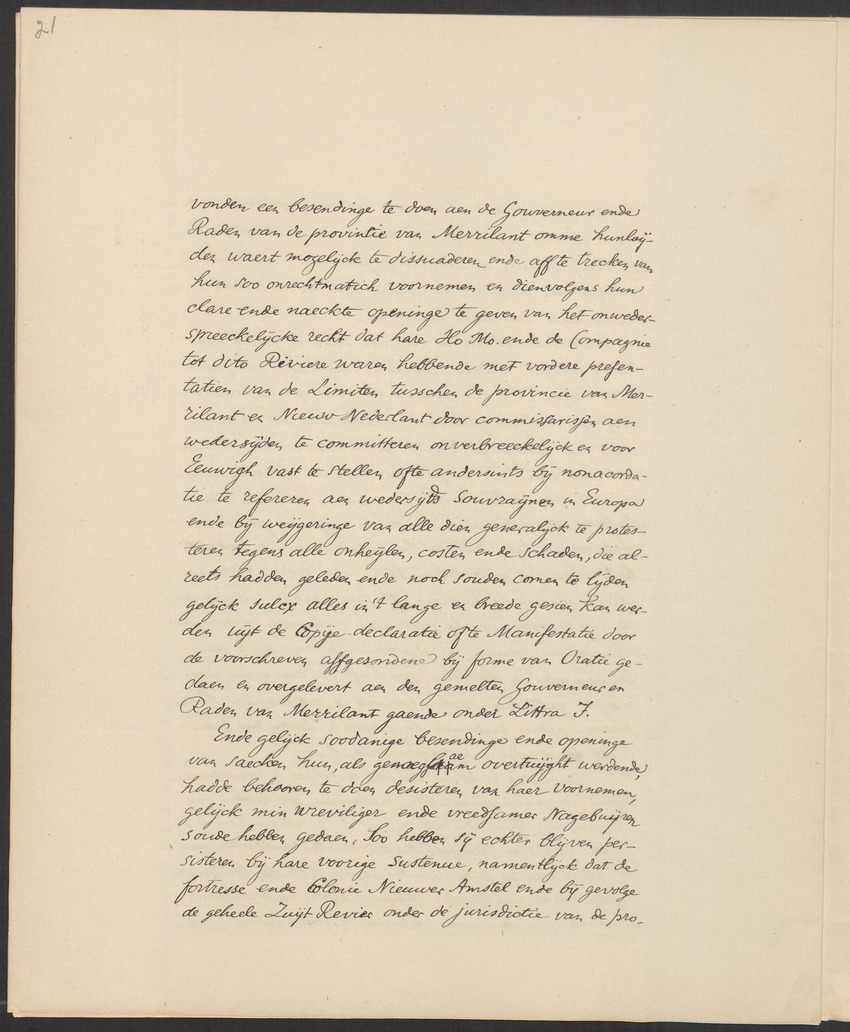 21
vonden een besendinge te doen aen de Gouverneur ende
Raden van de provintie van Merrilant omme hunluÿ-
den waert mogelÿck te dissuaderen ende aff te trecken van
hun soo onrechtmatich voornemen en dienvolgens hun
clare ende naeckte openinge te geven van het onweder-
spreeckelÿcke recht dat hare Ho Mo. ende de Compagnie
tot dito Riviere waren hebbende met vordere presen-
tatien van de Limiten tusschen de provincie van Mer-
rilant en Nieuw Nederlant door commissarissen aen
wedersÿden te committeren onverbreeckelÿck en voor
Eeuwigh vast te stellen ofte andersints bÿ nonacorda-
tie te refereren aen wedersÿds Souvraÿnen in Europa
ende bÿ weÿgeringe van alle dien generalÿck te protes-
teren tegens alle onheÿlen, costen ende schaden, die al-
reets hadden geleden ende noch souden comen te lÿden
gelÿck sulcx alles in 't lange en breede gesien kan wer-
den uÿt de Copÿe declaratie ofte Manifestatie door
de voorschreven affgesondene bÿ forme van Oratie ge-
daen en overgelevert aen den gemelten Gouverneur en
Raden van Merrilant gaende onder Littra J.
Ende gelÿck soodanige besendinge ende openinge
van saecken hun, als overtuÿght werdende,
hadde behooren te doen desisteren van haer voornemen,
gelÿck min wreviliger ende vreedsamer Nagebuÿren
soude hebben gedaen, Soo hebben sÿ echter blÿven per-
sisteren bÿ hare voorige Sustenue, namentlÿck dat de
fortresse ende Colonie Nieuwer Amstel ende bÿ gevolge
de geheele Zuÿt Revier onder de jurisdictie van de pro-